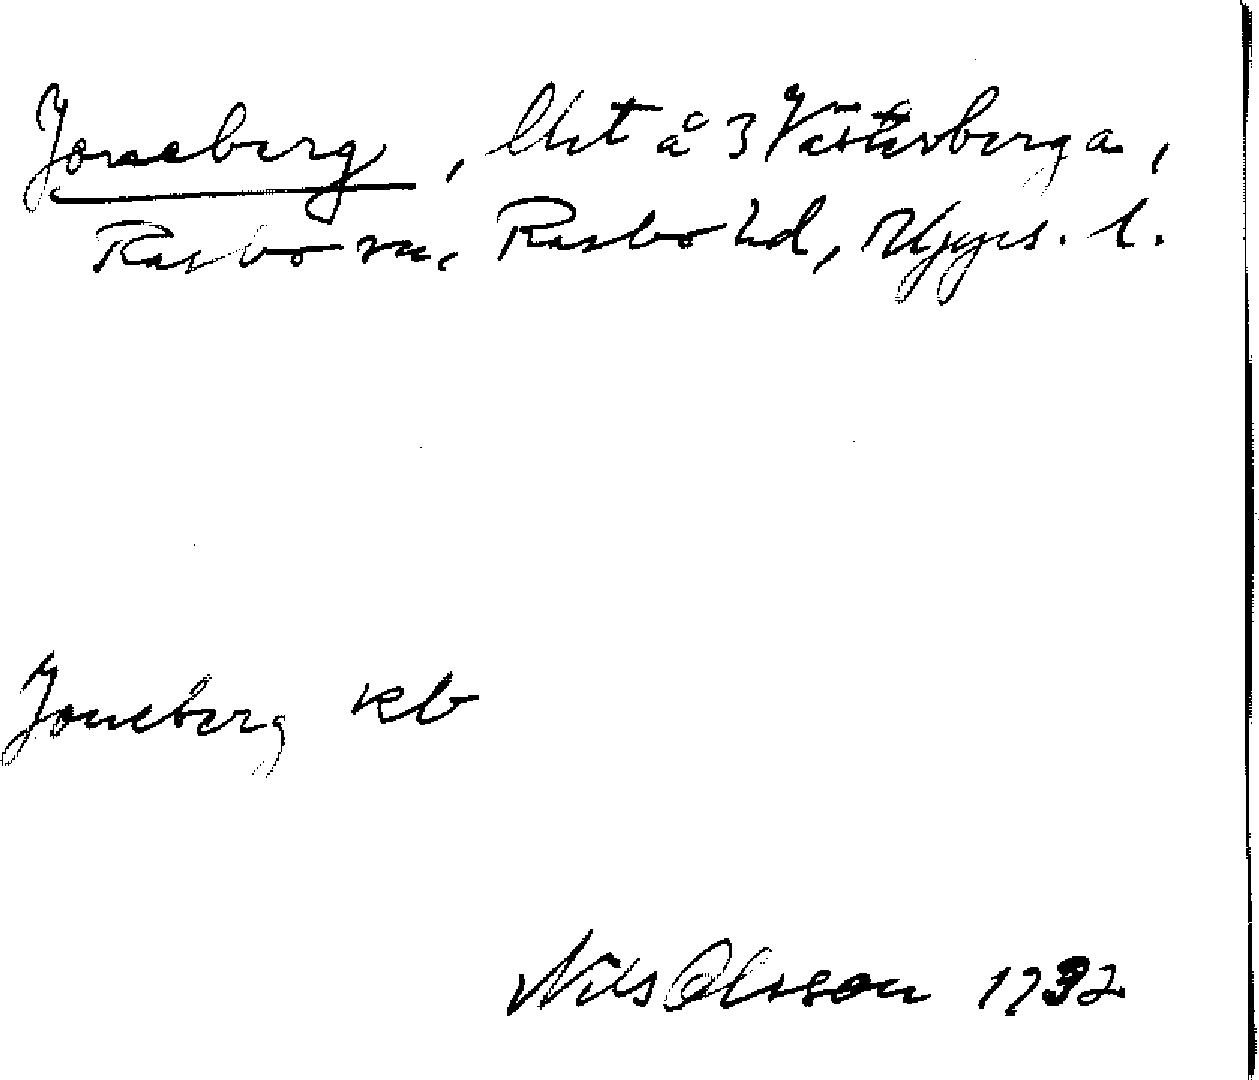 Joneberg, lht å 3 Västerberga,
Rasbo sn, Rasbo hd, Upps. l.
Joneberg kb
Nils Olsson 1932